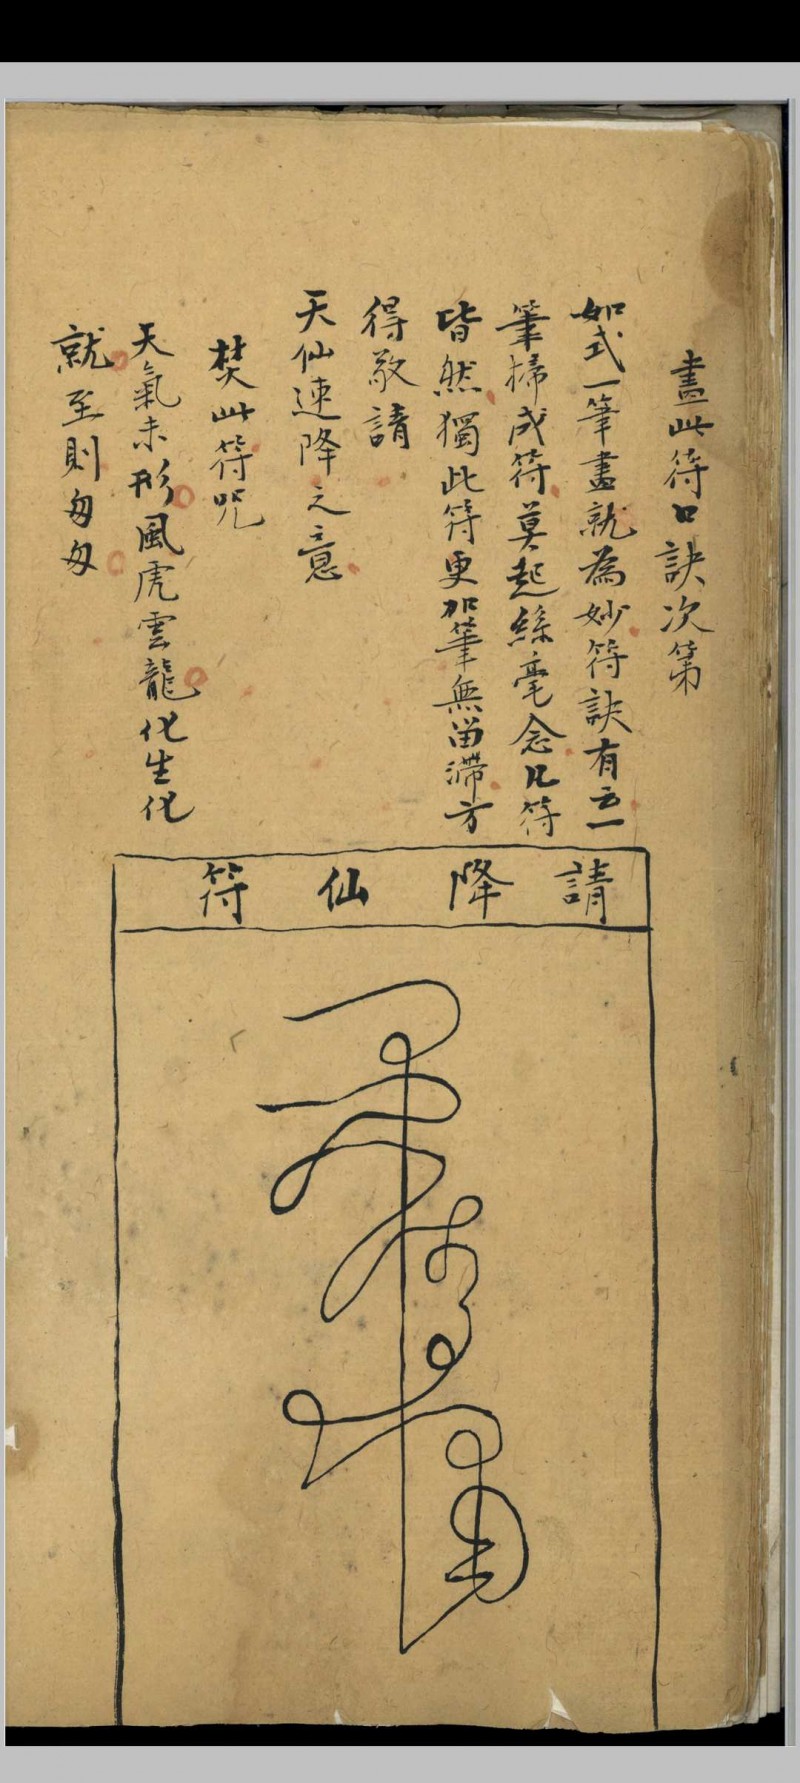 畫此符口訣次第
如式一筆畫就為妙符訣有云一
筆掃成符莫起絲毫念凡符
皆然獨此符更加筆無留滯方
得敬請
天仙速降之意
焚此符咒
天氣未形風虎雲龍化生化
就至則匆匆
請降仙符